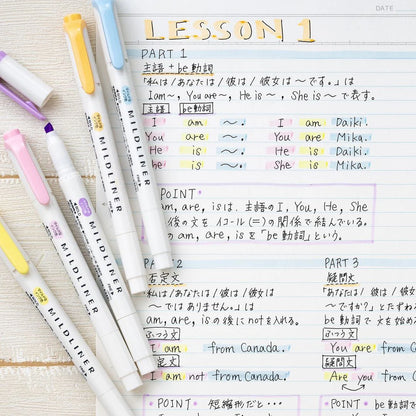 DATE
LESSON 1
PART 1
主語 + be動詞
「私は / あなたは / 彼は / 彼女は 〜です。」は
I am 〜, You are 〜, He is 〜, She is 〜 で表す。
主語 be動詞
I am 〜. I am Daiki.
You are 〜. You are Mika.
He is 〜. He is Daiki.
She is 〜. She is Mika.
POINT
am, are, is は、主語の I, You, He, She
後の文を イコール (=) の関係で結んでいる。
am, are, is を 「be動詞」という。
2
否定文
私は / あなたは / 彼は / 彼女は
〜ではありません。」は
am, are, is の後に not を入れる。
ふつう文
I am from Canada.
定文
I am not from Canada.
POINT 短縮形だと・・・
PART 3
疑問文
「あなたは / 彼は / 彼女は
〜ですか?」とたずねる
be動詞で文を始め
ふつう文
You are from
疑問文
Are you from
POINT be動詞
MILDLINER
MILDLINER
MILDLINER
MILDLINER
MILDLINER